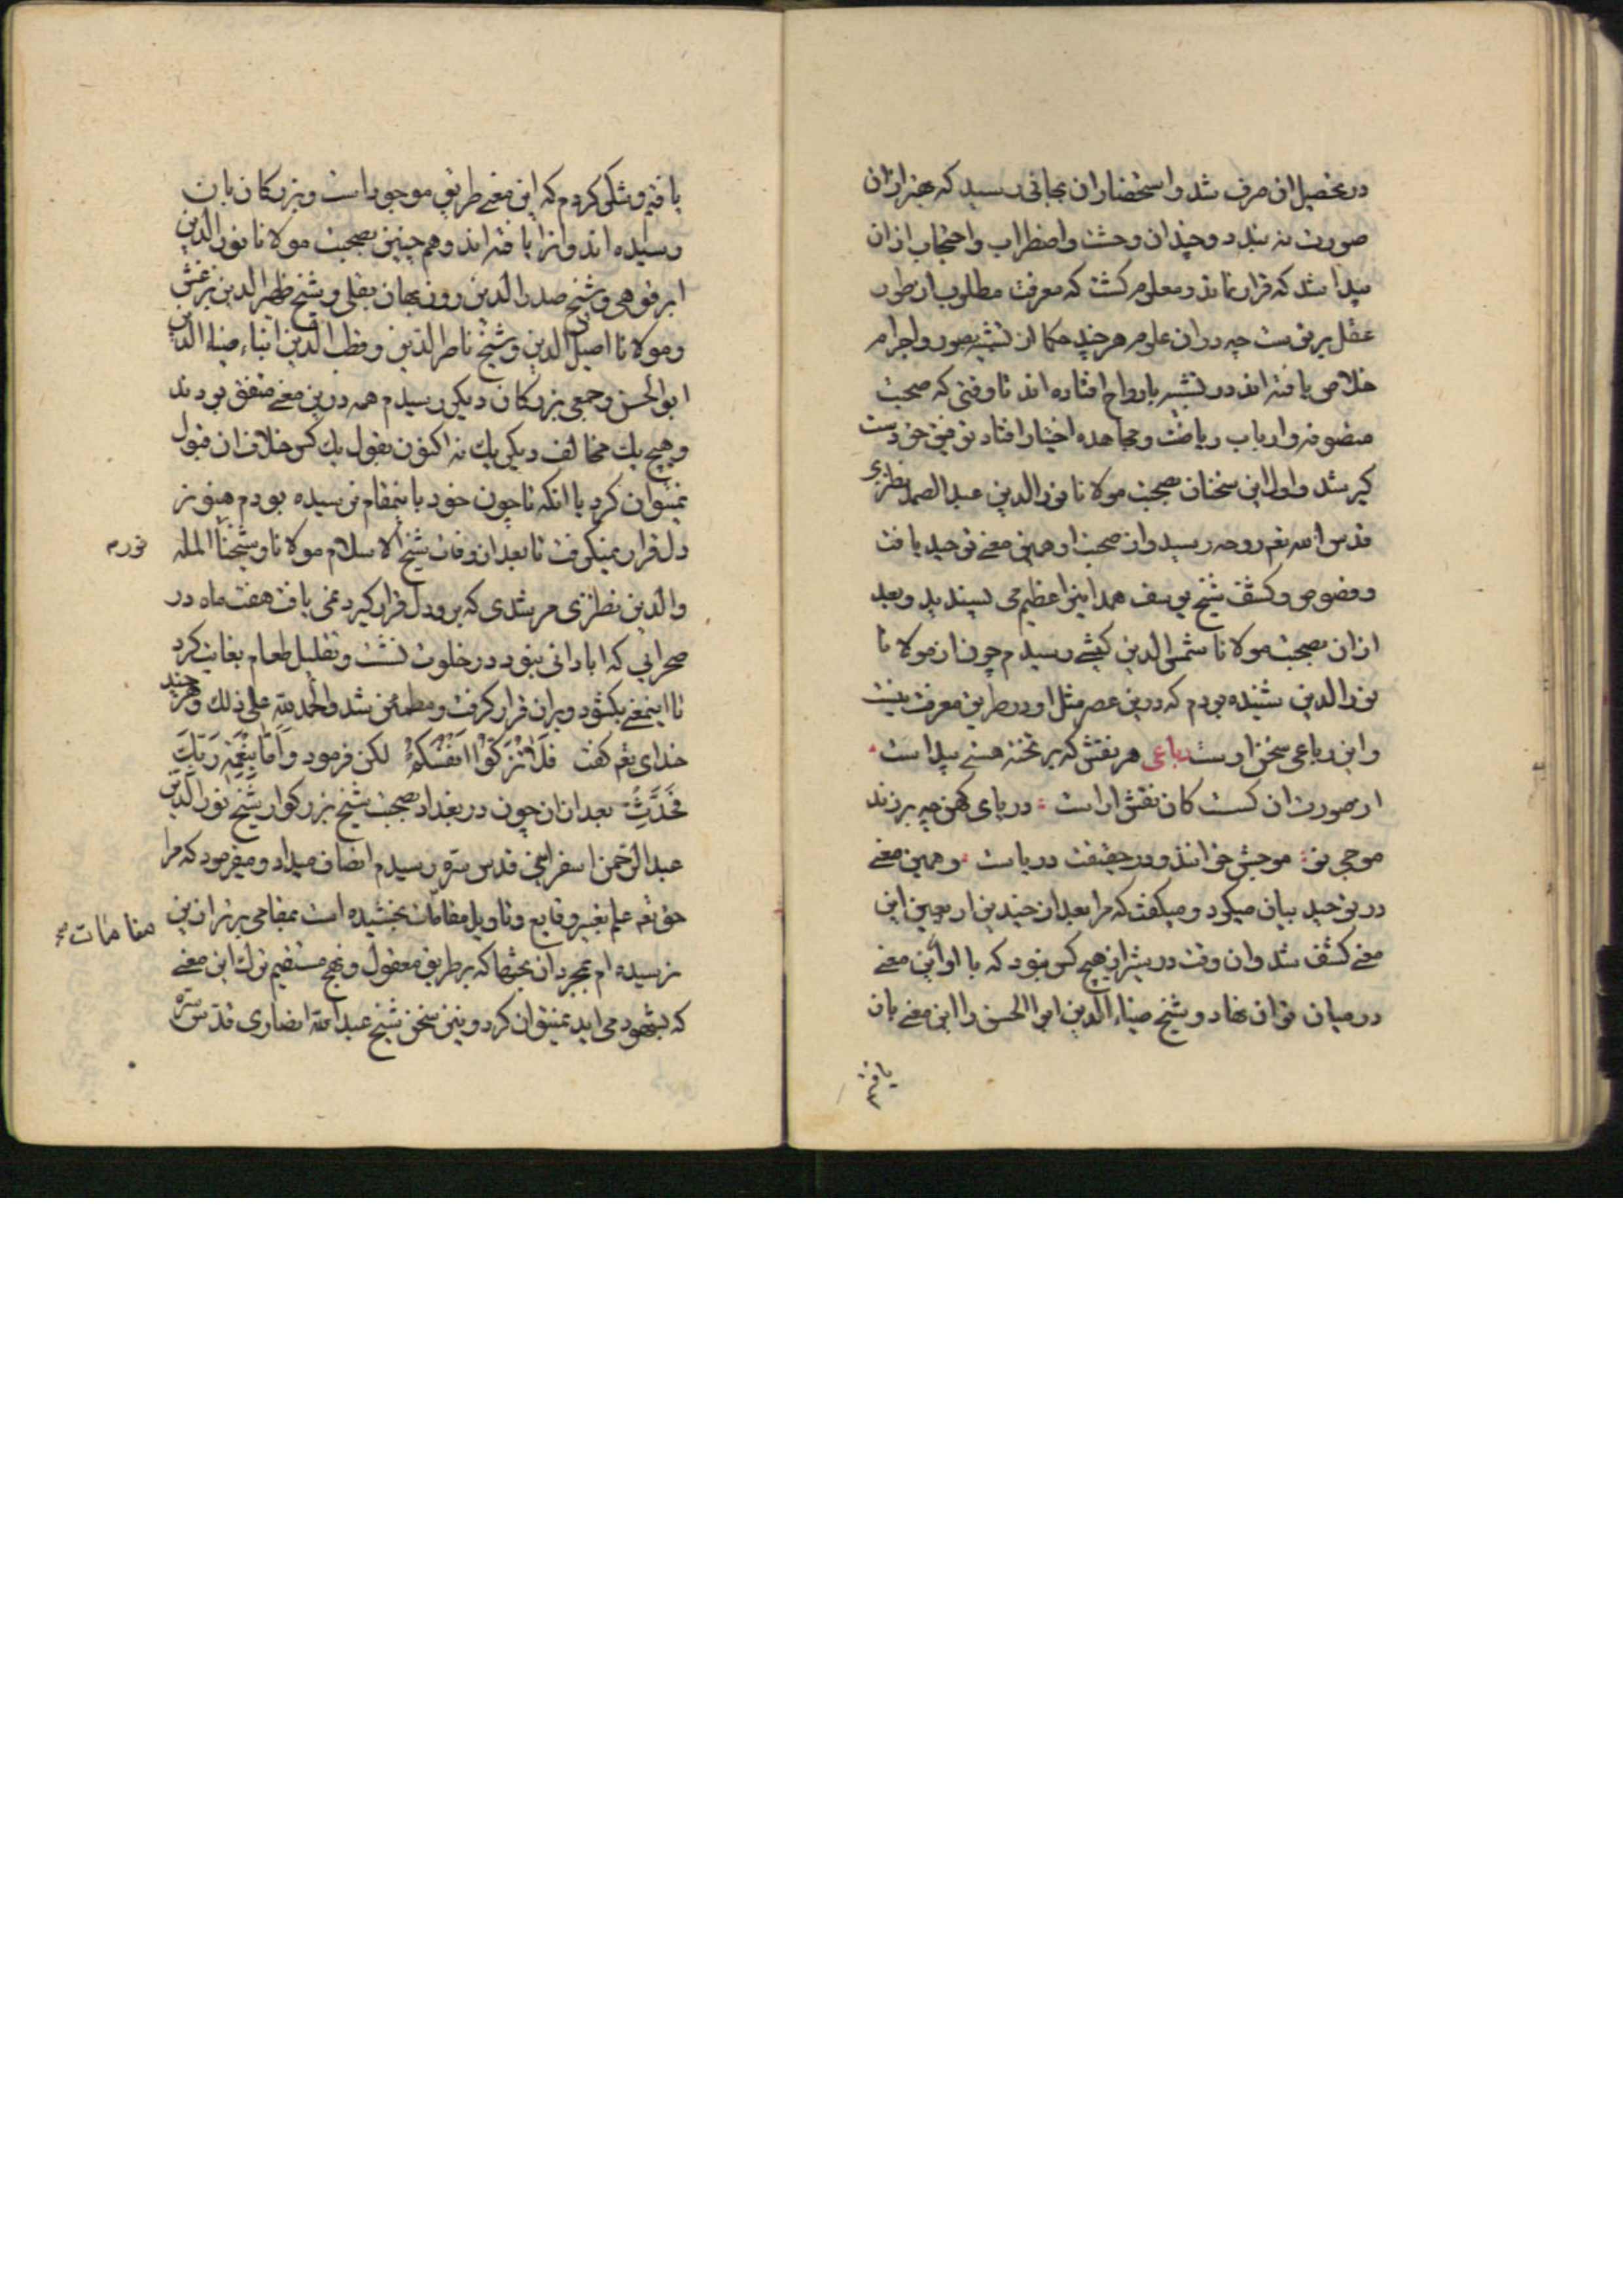 در تحصیل ان صرف شد و استحضار ان بجائی رسید که بهتر از ان
صورت نه بندد و چندان وحشت و اضطراب و احتجاب از ان
پیدا شد که قرار نماند و معلوم کشت که معرفت مطلوب از طور
عقل برتر است چه در ان علوم هر چند حکما از تشبیه بصور و اجرام
خلاص یافته اند در تشبیه بارواح افتاده اند تا وقتی که صحبت
متصوفه و ارباب ریاضت و مجاهده اختیار افتاد توفیق حق دست
کیر شد و اول این سخنان بصحبت مولانا نور الدین عبد الصمد نطنزی
قدس الله تعم روحه رسید و از صحبت او همین معنی توحید یافت
و فصوص و کشف شیخ یوسف همدانی را عظیم می پسندید و بعد
از ان بصحبت مولانا شمس الدین کیشی رسیدم چون از مولانا
نور الدین شنیده بودم که درین عصر مثل او در طریق معرفت نیست
و این رباعی سخن اوست رباعی هر نقش که بر تخته هستی پیداست
ان صورت ان کست کان نقش اراست دریای کهن چه بر زند
موجی نو موجش خوانند و در حقیقت دریاست و همین معنی
در توحید بیان میکرد و میکفت که مرا بعد از چندین اربعین این
معنی کشف شد و ان وقت در شیراز هیچ کس نبود که با او این معنی
در میان توان نهاد و شیخ ضیاء الدین ابو الحسن را این معنی بان
یافته
یافتم و شکی کردم که این معنی طریق موجود است و بزرکان بان
رسیده اند و انرا یافته اند و هم چنین بصحبت مولانا نور الدین
ابرقوهی و شیخ صدر الدین روزبهان بقلی و شیخ ظهیر الدین بزغش
و مولانا اصیل الدین و شیخ ناصر الدین و قطب الدین ابناء ضیاء الدین
ابو الحسن و جمعی بزرکان دیکر رسیدم همه درین معنی متفق بودند
و هیچ یك مخالف دیکر یك نه اکنون بقول یك کس خلاف ان قبول
نمیتوان کرد با انکه تا چون خود باینمقام نرسیده بودم هنوز
دل قرار نمیکرفت تا بعد از وفات شیخ الاسلام مولانا و شیخنا المله نورم
و الدین نطنزی مرشدی که برو دل قرار کیرد نمی یافت هفت ماه در
صحرایی که ابادانی نبود در خلوت نشت و تقلیل طعام بغایت کرد
تا اینمعنی بکشود و بران قرار کرفت و مطمئن شد و الحمد لله علی ذلك و هر چند
خدای تعم کفت فَلَا تُزَکُّوا اَنْفُسَکُمْ لکن فرمود وَ اَمَّا بِنِعْمَةِ رَبِّكَ
فَحَدِّثْ بعد از ان چون در بغداد بصحبت شیخ بزرکوار شیخ نور الدین
عبد الرحمن اسفراینی قدس سره رسیدم انصاف میداد و میفرمود که مرا
حق تعم علم تعبیر وقایع و تاویل مقامات بخشیده است بمقامی برتر از ین مقامات صح
نرسیده ام بمجرد ان بحثها که بر طریق معقول و نهج مستقیم ترك این معنی
که بشهود می اید نمیتوان کرد و نیز سخن شیخ عبد الله انصاری قدس سره